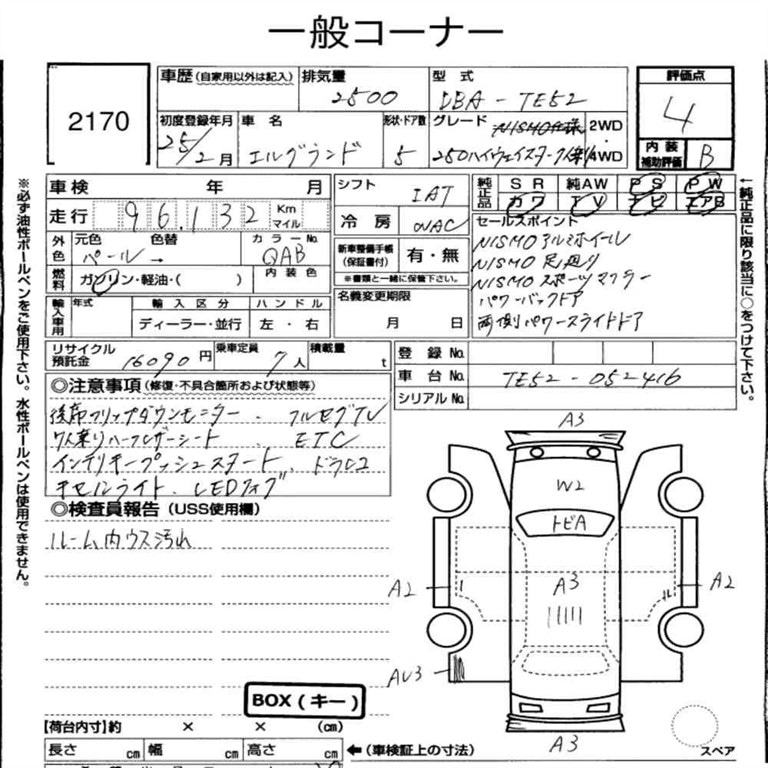 一般コーナー
2170
車歴 (自家用以外は記入)
排気量 2500
型式 DBA - TE52
評価点 4
初度登録年月 25/2月
車名 エルグランド
形状・ドア数 5
グレード 250ハイウェイスター
2WD
4WD
内装補助評価 B
車検 年 月
シフト IAT
純正品 SR 純AW PS PW
カワ TV ナビ エアB
走行 96,132 Km マイル
冷房 WAC
セールスポイント
NISMO アルミホイール
NISMO 足廻り
NISMO スポーツマフラー
パワーバックドア
両側パワースライドドア
外色 元色 色替 カラーNo.
パール → QAB
新車整備手帳(保証書付) 有・無
※書類と一緒に保管下さい。
燃料 ガソリン・軽油・( )
内装色
名義変更期限
月 日
輸入車用 年式 輸入区分 ハンドル
ディーラー・並行 左・右
リサイクル預託金 16090円
乗車定員 7人
積載量 t
登録No.
車台No. TE52-052416
シリアルNo.
◎注意事項(修復・不具合箇所および状態等)
後席フリップダウンモニター . フルセグTV
7人乗りハーフレザーシート . ETC
インテリキープッシュスタート . ドラレコ
キセノンライト . LEDフォグ
◎検査員報告 (USS使用欄)
ルーム内ウス汚れ
A3
W2
トビA
A3
A2
A2
AU3
A3
スペア
BOX(キー)
【荷台内寸】約 × × (cm)
長さ cm 幅 cm 高さ cm ←(車検証上の寸法)
※必ず油性ボールペンをご使用下さい。水性ボールペンは使用できません。
←純正品に限り該当に○をつけて下さい。